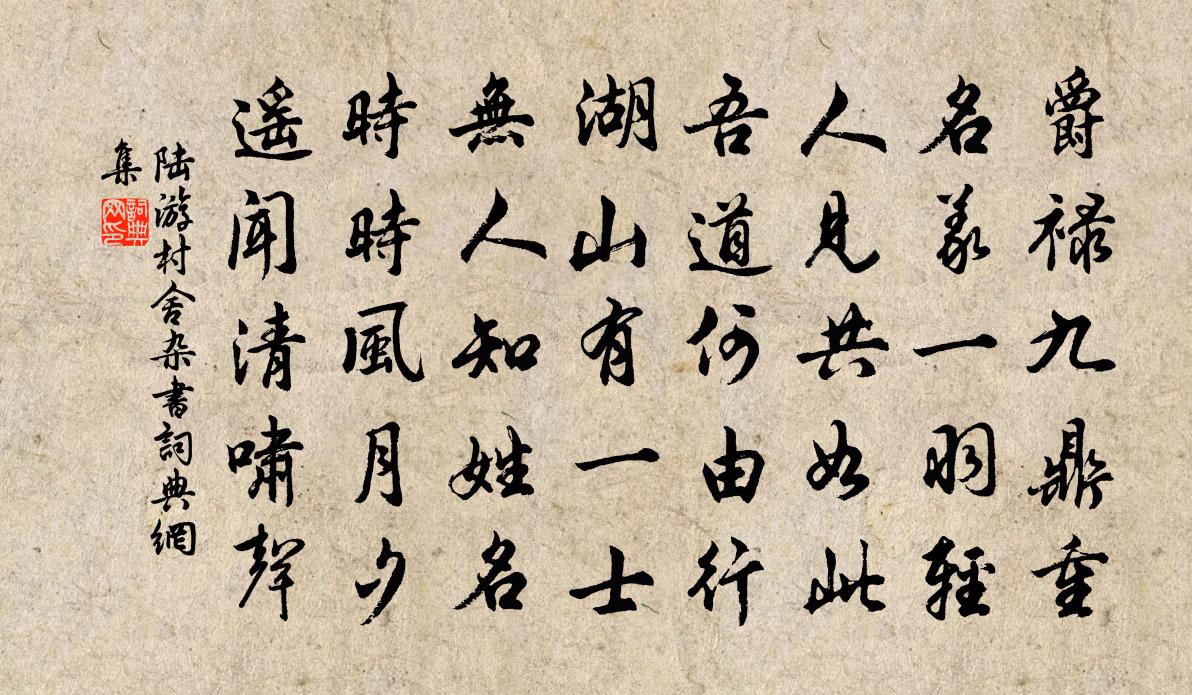 爵禄九鼎重
名義一羽輕
人見共如此
吾道何由行
湖山有一士
無人知姓名
時時風月夕
遥聞清嘯聲
陆游村舍杂書詞典網
集
詞典
网印